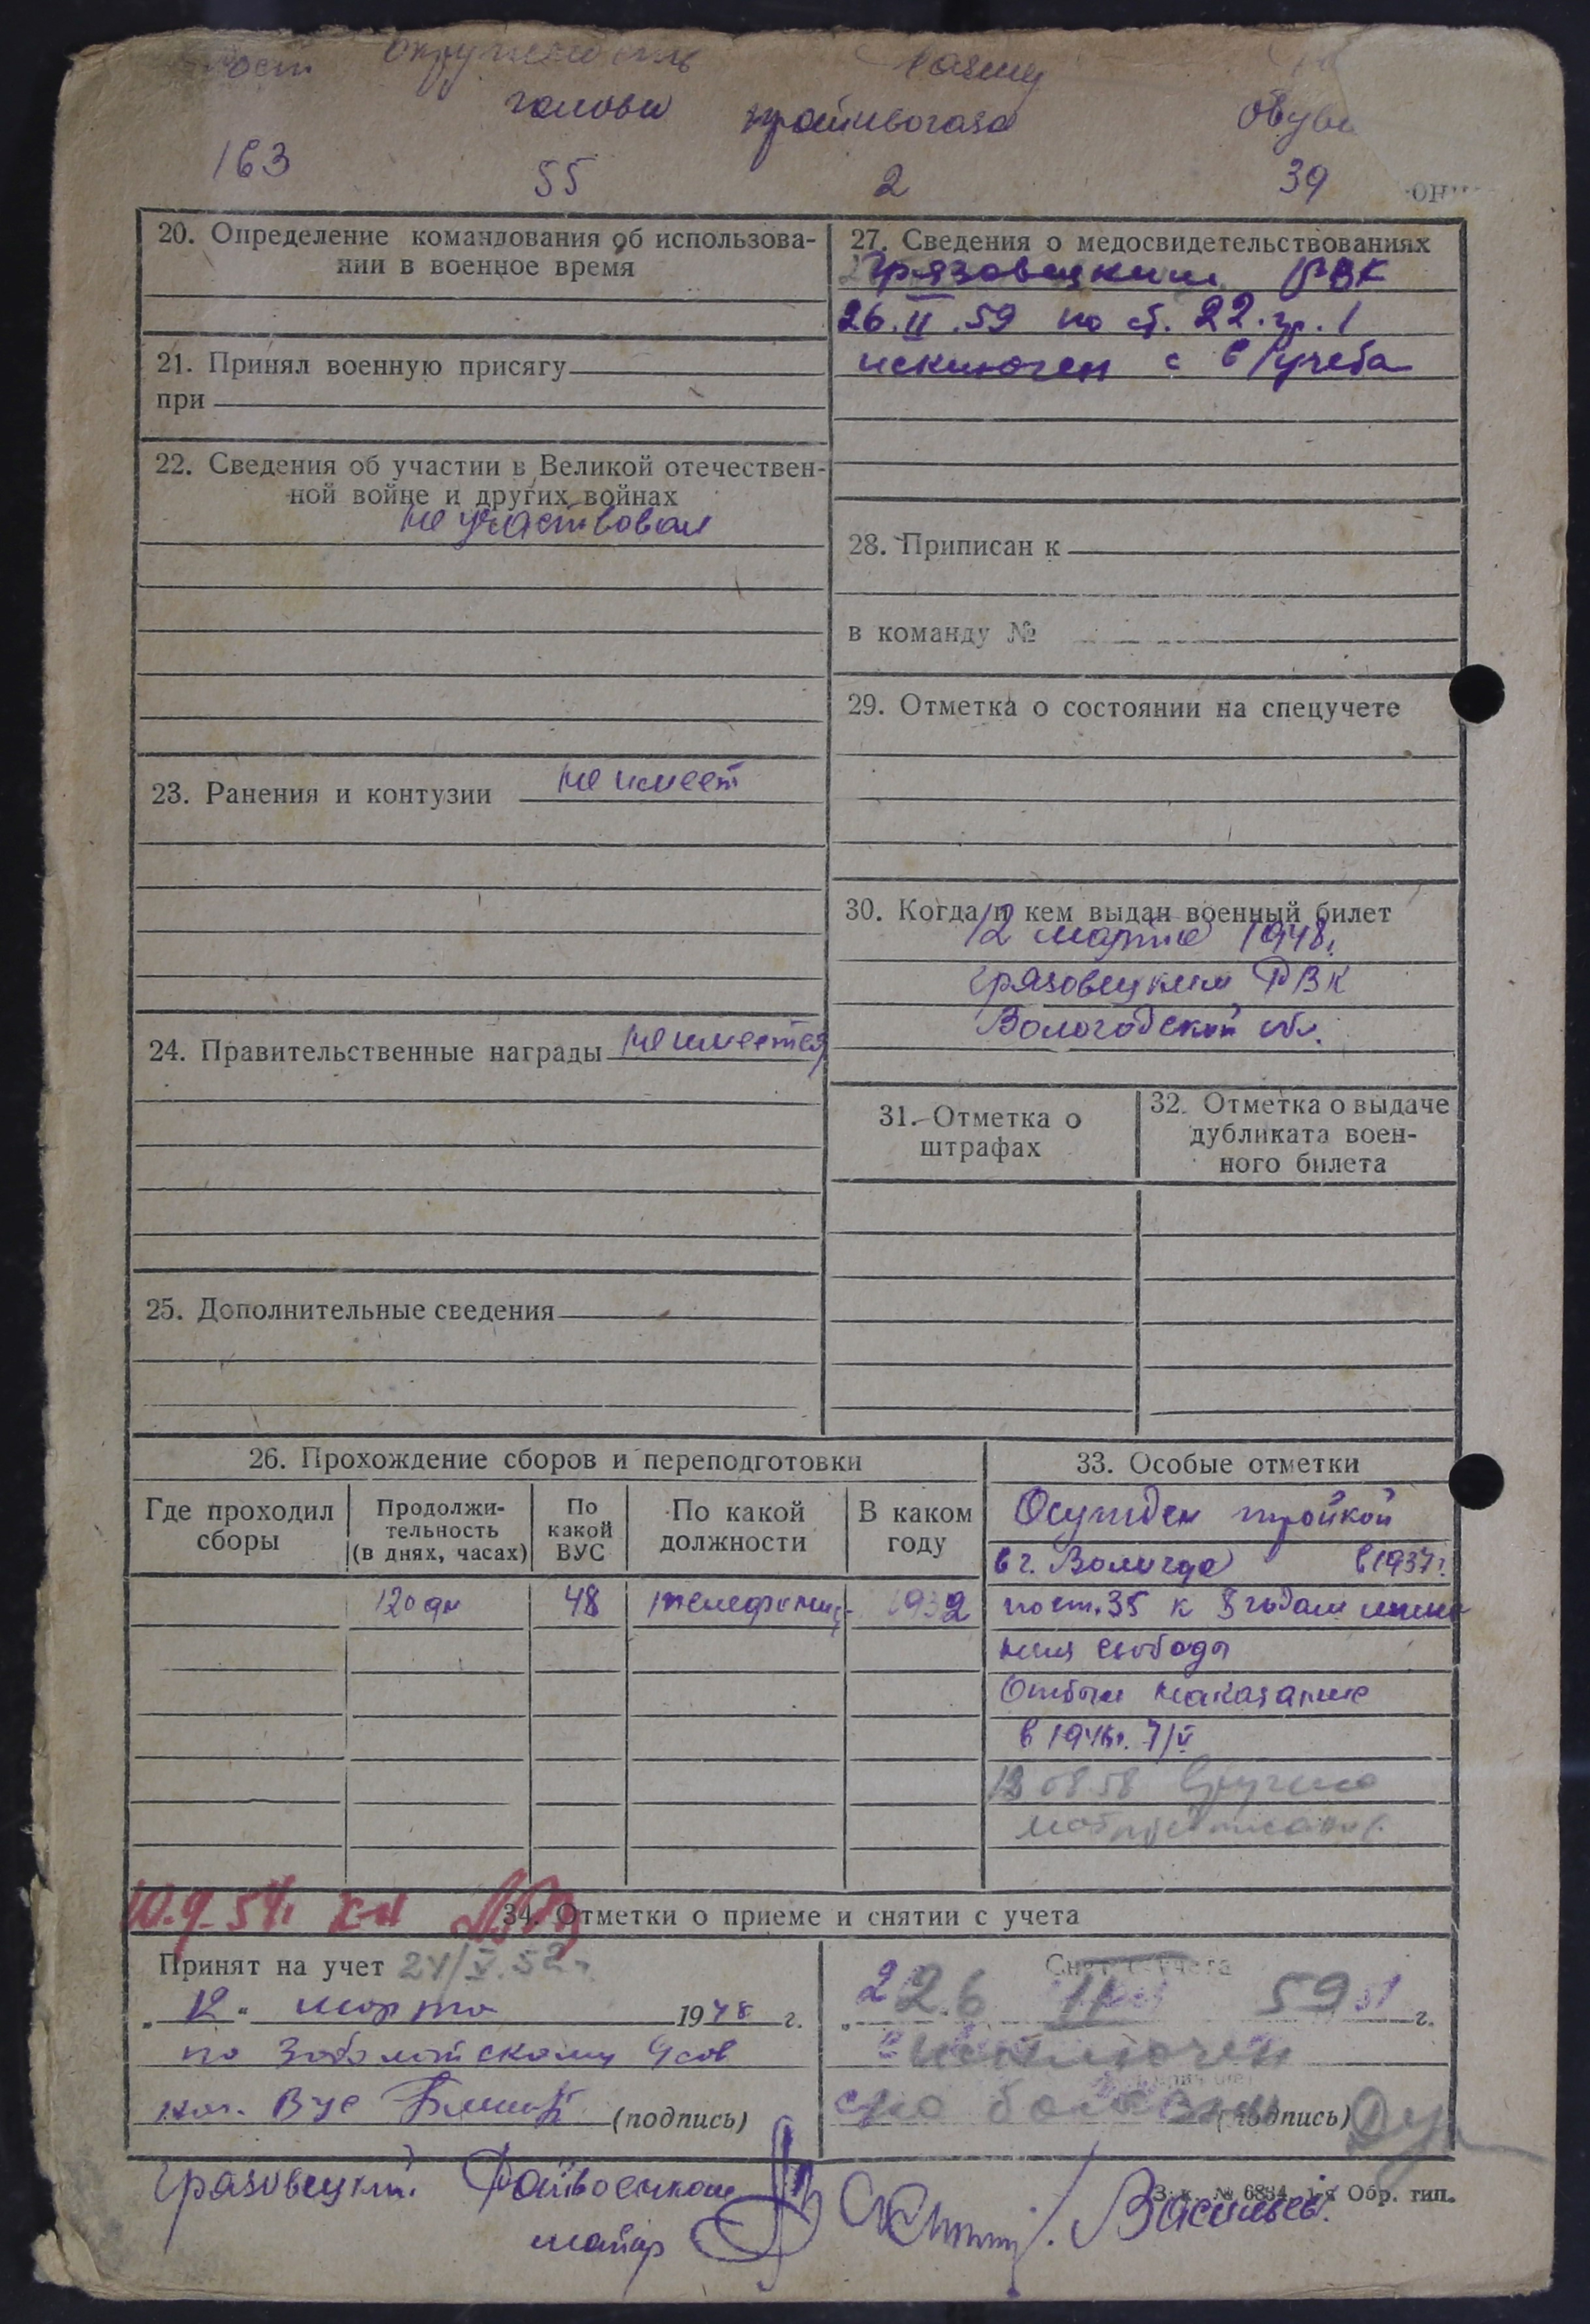 рост окружность голови размер противогаза обуви
163 55 2 39
20. Определение командования об использова-
нии в военное время
21. Принял военную присягу
при
22. Сведения об участии в Великой отечествен-
ной войне и других войнах
не участвовал
23. Ранения и контузии не имеет
24. Правительственные награды не имеется
25. Дополнительные сведения
27. Сведения о медосвидетельствованиях
Грязовецким РВК
26.II.59 по ст. 22. гр. 1
исключен с в/учета
28. Приписан к
в команду №
29. Отметка о состоянии на спецучете
30. Когда и кем выдан военный билет
12 марта 1948г.
Грязовецким РВК
Вологодской обл.
31. Отметка о
штрафах
32. Отметка о выдаче
дубликата воен-
ного билета
26. Прохождение сборов и переподготовки
Где проходил
сборы
Продолжи-
тельность
(в днях, часах)
По
какой
ВУС
По какой
должности
В каком
году
120 дн 48 телефонис- 1932
33. Особые отметки
Осужден тройкой
в г. Вологда в 1937г.
по ст. 35 к 8 годам лише
ния свободы
Отбыл наказание
в 1946г. 7/V
12 08.58 вручено
мобпредписание
10.9.54г.
34. Отметки о приеме и снятии с учета
Принят на учет 24/V.52г.
„12" марта 1948 г.
по Заболотскому
нач. ВУС (подпись)
Снят с учета
26 II 59 г.
исключен
по болезни (подпись)
Грязовецкий Райвоенком
майор
Васильев.
Зак. № 6834 1-я Обр. тип.